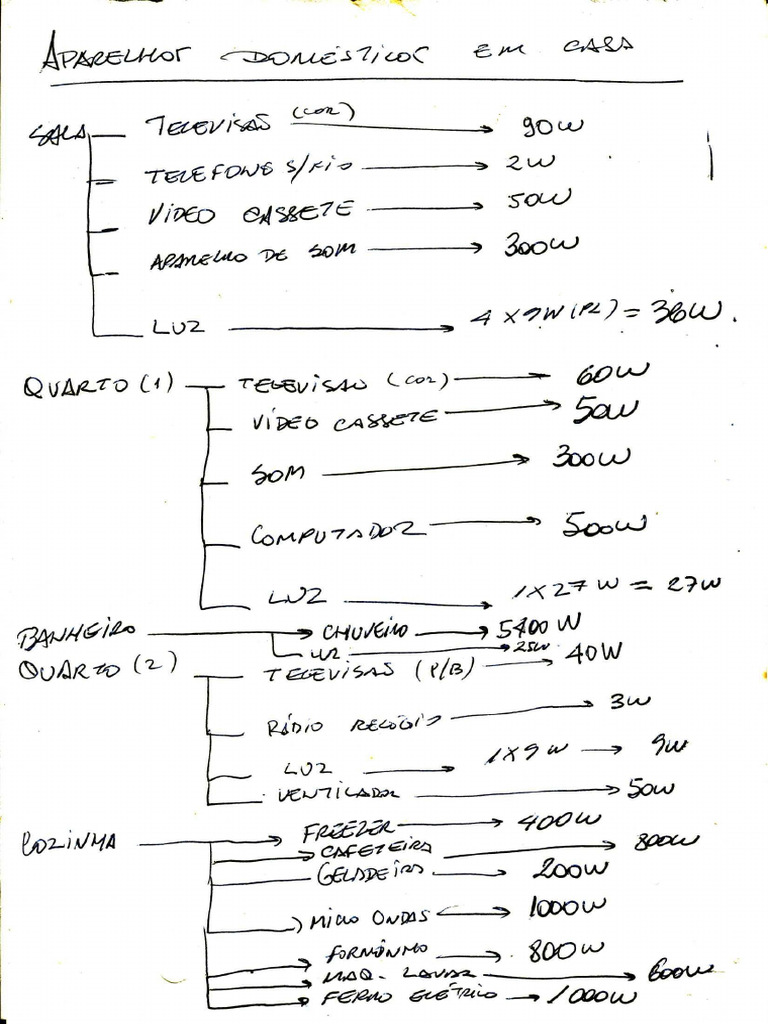 APARELHOS DOMÉSTICOS EM CASA
SALA TELEVISÃO (COR) 90W
TELEFONE S/FIO 2W
VÍDEO CASSETE 50W
APARELHO DE SOM 300W
LUZ 4 X 9W (PL) = 36W.
QUARTO (1) TELEVISÃO (COR) 60W
VÍDEO CASSETE 50W
SOM 300W
COMPUTADOR 500W
LUZ 1 X 27W = 27W
BANHEIRO CHUVEIRO 5400W
LUZ 25W
QUARTO (2) TELEVISÃO (P/B) 40W
RÁDIO RELÓGIO 3W
LUZ 1X9W 9W
VENTILADOR 50W
COZINHA FREEZER 400W
CAFETEIRA 800W
GELADEIRA 200W
MICRO ONDAS 1000W
FORNINHO 800W
MAQ. LAVAR 600W
FERRO ELÉTRICO 1000W